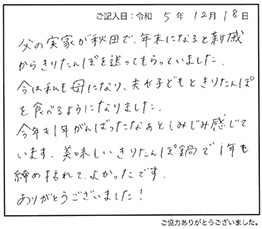 ご記入日：令和 5年 12月 18日
父の実家が秋田で、年末になると親戚
からきりたんぽを送ってもらっていました。
今は私も母になり、夫や子どもときりたんぽ
を食べるようになりました。
今年も1年がんばったなぁとしみじみ感じて
います。美味しいきりたんぽ鍋で1年を
締め括れて、よかったです。
ありがとうございました!
ご協力ありがとうございました。